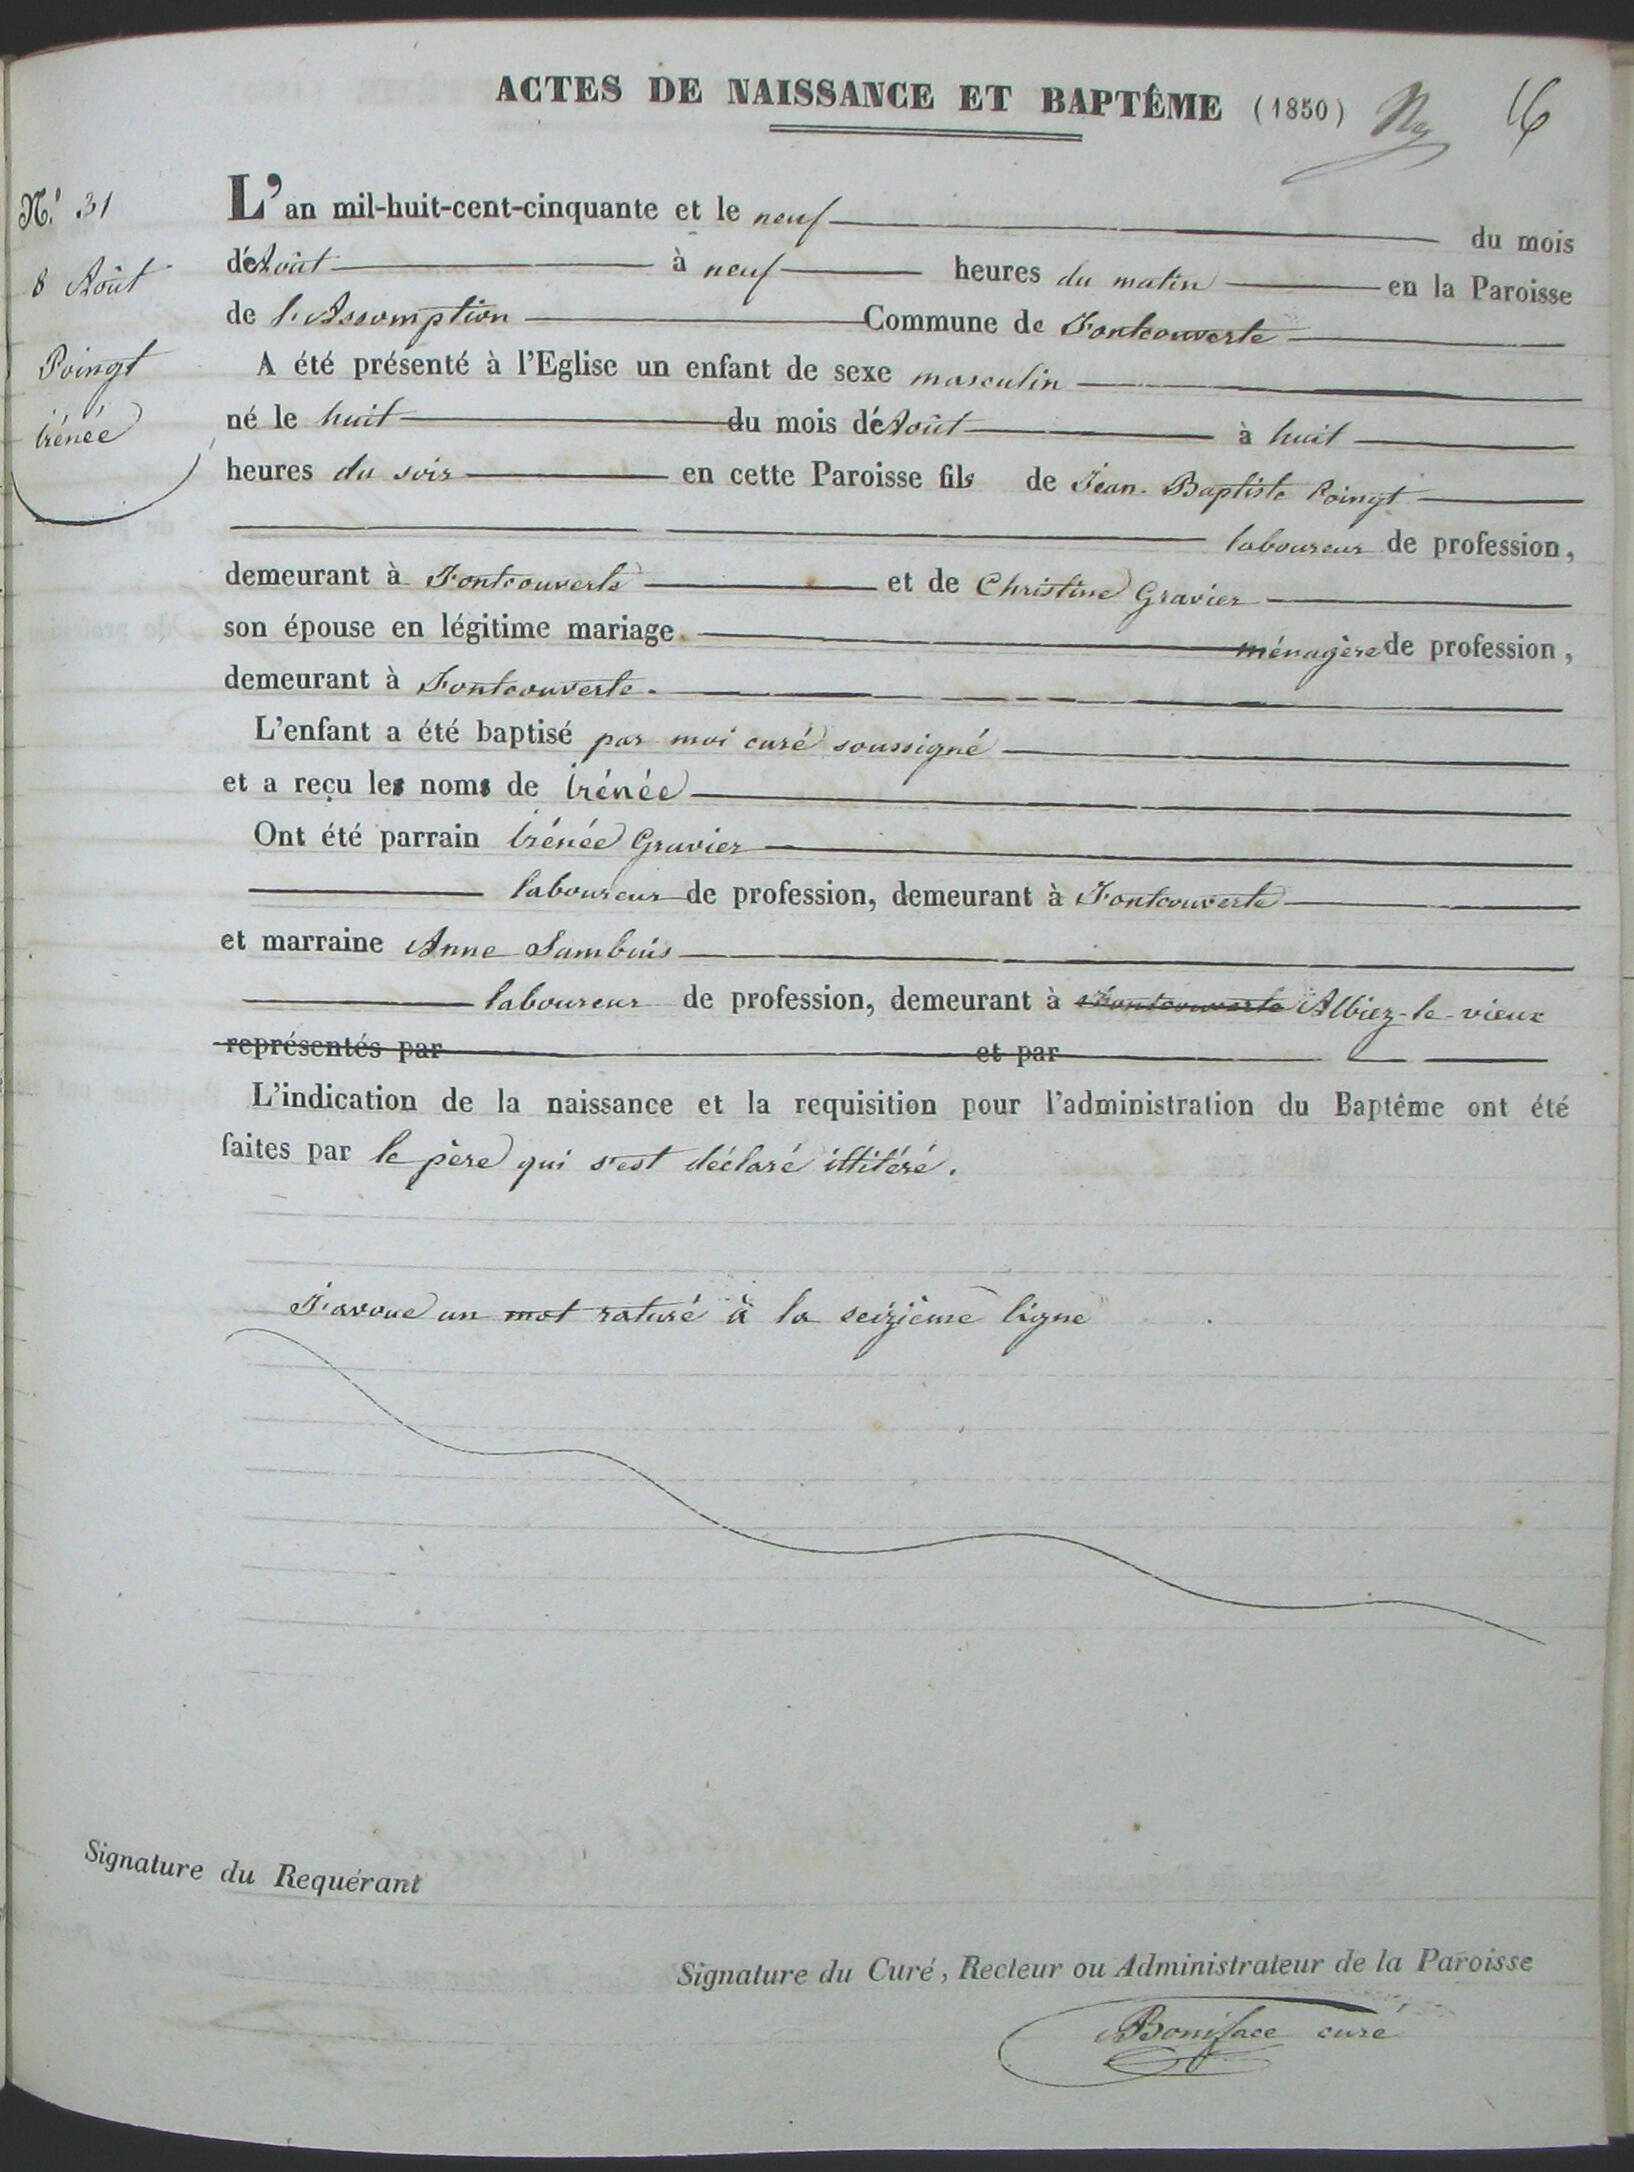 ACTES DE NAISSANCE ET BAPTÊME (1850) 16
N.° 31
8 Août
Poingt
irénée
L'an mil-huit-cent-cinquante et le neuf du mois
d'Août à neuf heures du matin en la Paroisse
de l'Assomption Commune de Fontcouverte
A été présenté à l'Eglise un enfant de sexe masculin
né le huit du mois d'Août à huit
heures du soir en cette Paroisse fils de Jean-Baptiste Poingt
laboureur de profession,
demeurant à Fontcouverte et de Christine Gravier
son épouse en légitime mariage ménagère de profession,
demeurant à Fontcouverte.
L'enfant a été baptisé par moi curé soussigné
et a reçu les noms de irénée
Ont été parrain irénée Gravier
laboureur de profession, demeurant à Fontcouverte
et marraine Anne Sambuis
laboureur de profession, demeurant à Fontcouverte Albiez-le-vieux
représentés par et par
L'indication de la naissance et la requisition pour l'administration du Baptême ont été
faites par le père qui s'est déclaré illitéré.
J'avoue un mot raturé à la seizième ligne
Signature du Requérant
Signature du Curé, Recteur ou Administrateur de la Paroisse
Boniface curé